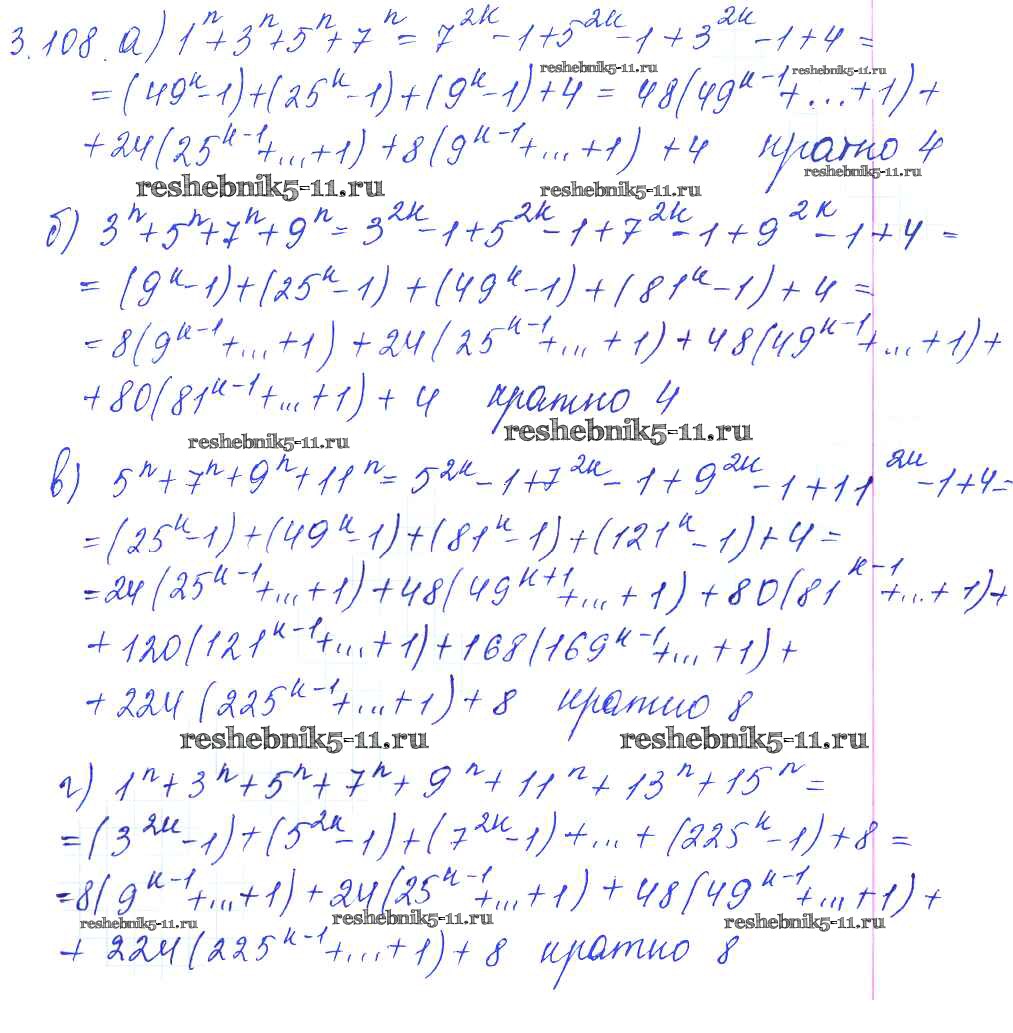 3.108. а) 1ⁿ+3ⁿ+5ⁿ+7ⁿ = 7^{2k}-1+5^{2k}-1+3^{2k}-1+4 =
reshebnik5-11.ru reshebnik5-11.ru
= (49^k-1)+(25^k-1)+(9^k-1)+4 = 48(49^{k-1}+...+1)+
+24(25^{k-1}+...+1)+8(9^{k-1}+...+1)+4 кратно 4
reshebnik5-11.ru reshebnik5-11.ru reshebnik5-11.ru
б) 3ⁿ+5ⁿ+7ⁿ+9ⁿ = 3^{2k}-1+5^{2k}-1+7^{2k}-1+9^{2k}-1+4 =
= (9^k-1)+(25^k-1)+(49^k-1)+(81^k-1)+4 =
= 8(9^{k-1}+...+1)+24(25^{k-1}+...+1)+48(49^{k-1}+...+1)+
+80(81^{k-1}+...+1)+4 кратно 4
reshebnik5-11.ru reshebnik5-11.ru
в) 5ⁿ+7ⁿ+9ⁿ+11ⁿ = 5^{2k}-1+7^{2k}-1+9^{2k}-1+11^{2k}-1+4=
= (25^k-1)+(49^k-1)+(81^k-1)+(121^k-1)+4 =
= 24(25^{k-1}+...+1)+48(49^{k+1}+...+1)+80(81^{k-1}+...+1)+
+120(121^{k-1}+...+1)+168(169^{k-1}+...+1)+
+224(225^{k-1}+...+1)+8 кратно 8
reshebnik5-11.ru reshebnik5-11.ru
г) 1ⁿ+3ⁿ+5ⁿ+7ⁿ+9ⁿ+11ⁿ+13ⁿ+15ⁿ =
= (3^{2k}-1)+(5^{2k}-1)+(7^{2k}-1)+...+(225^k-1)+8 =
= 8(9^{k-1}+...+1)+24(25^{k-1}+...+1)+48(49^{k-1}+...+1)+
reshebnik5-11.ru reshebnik5-11.ru reshebnik5-11.ru
+ 224(225^{k-1}+...+1)+8 кратно 8